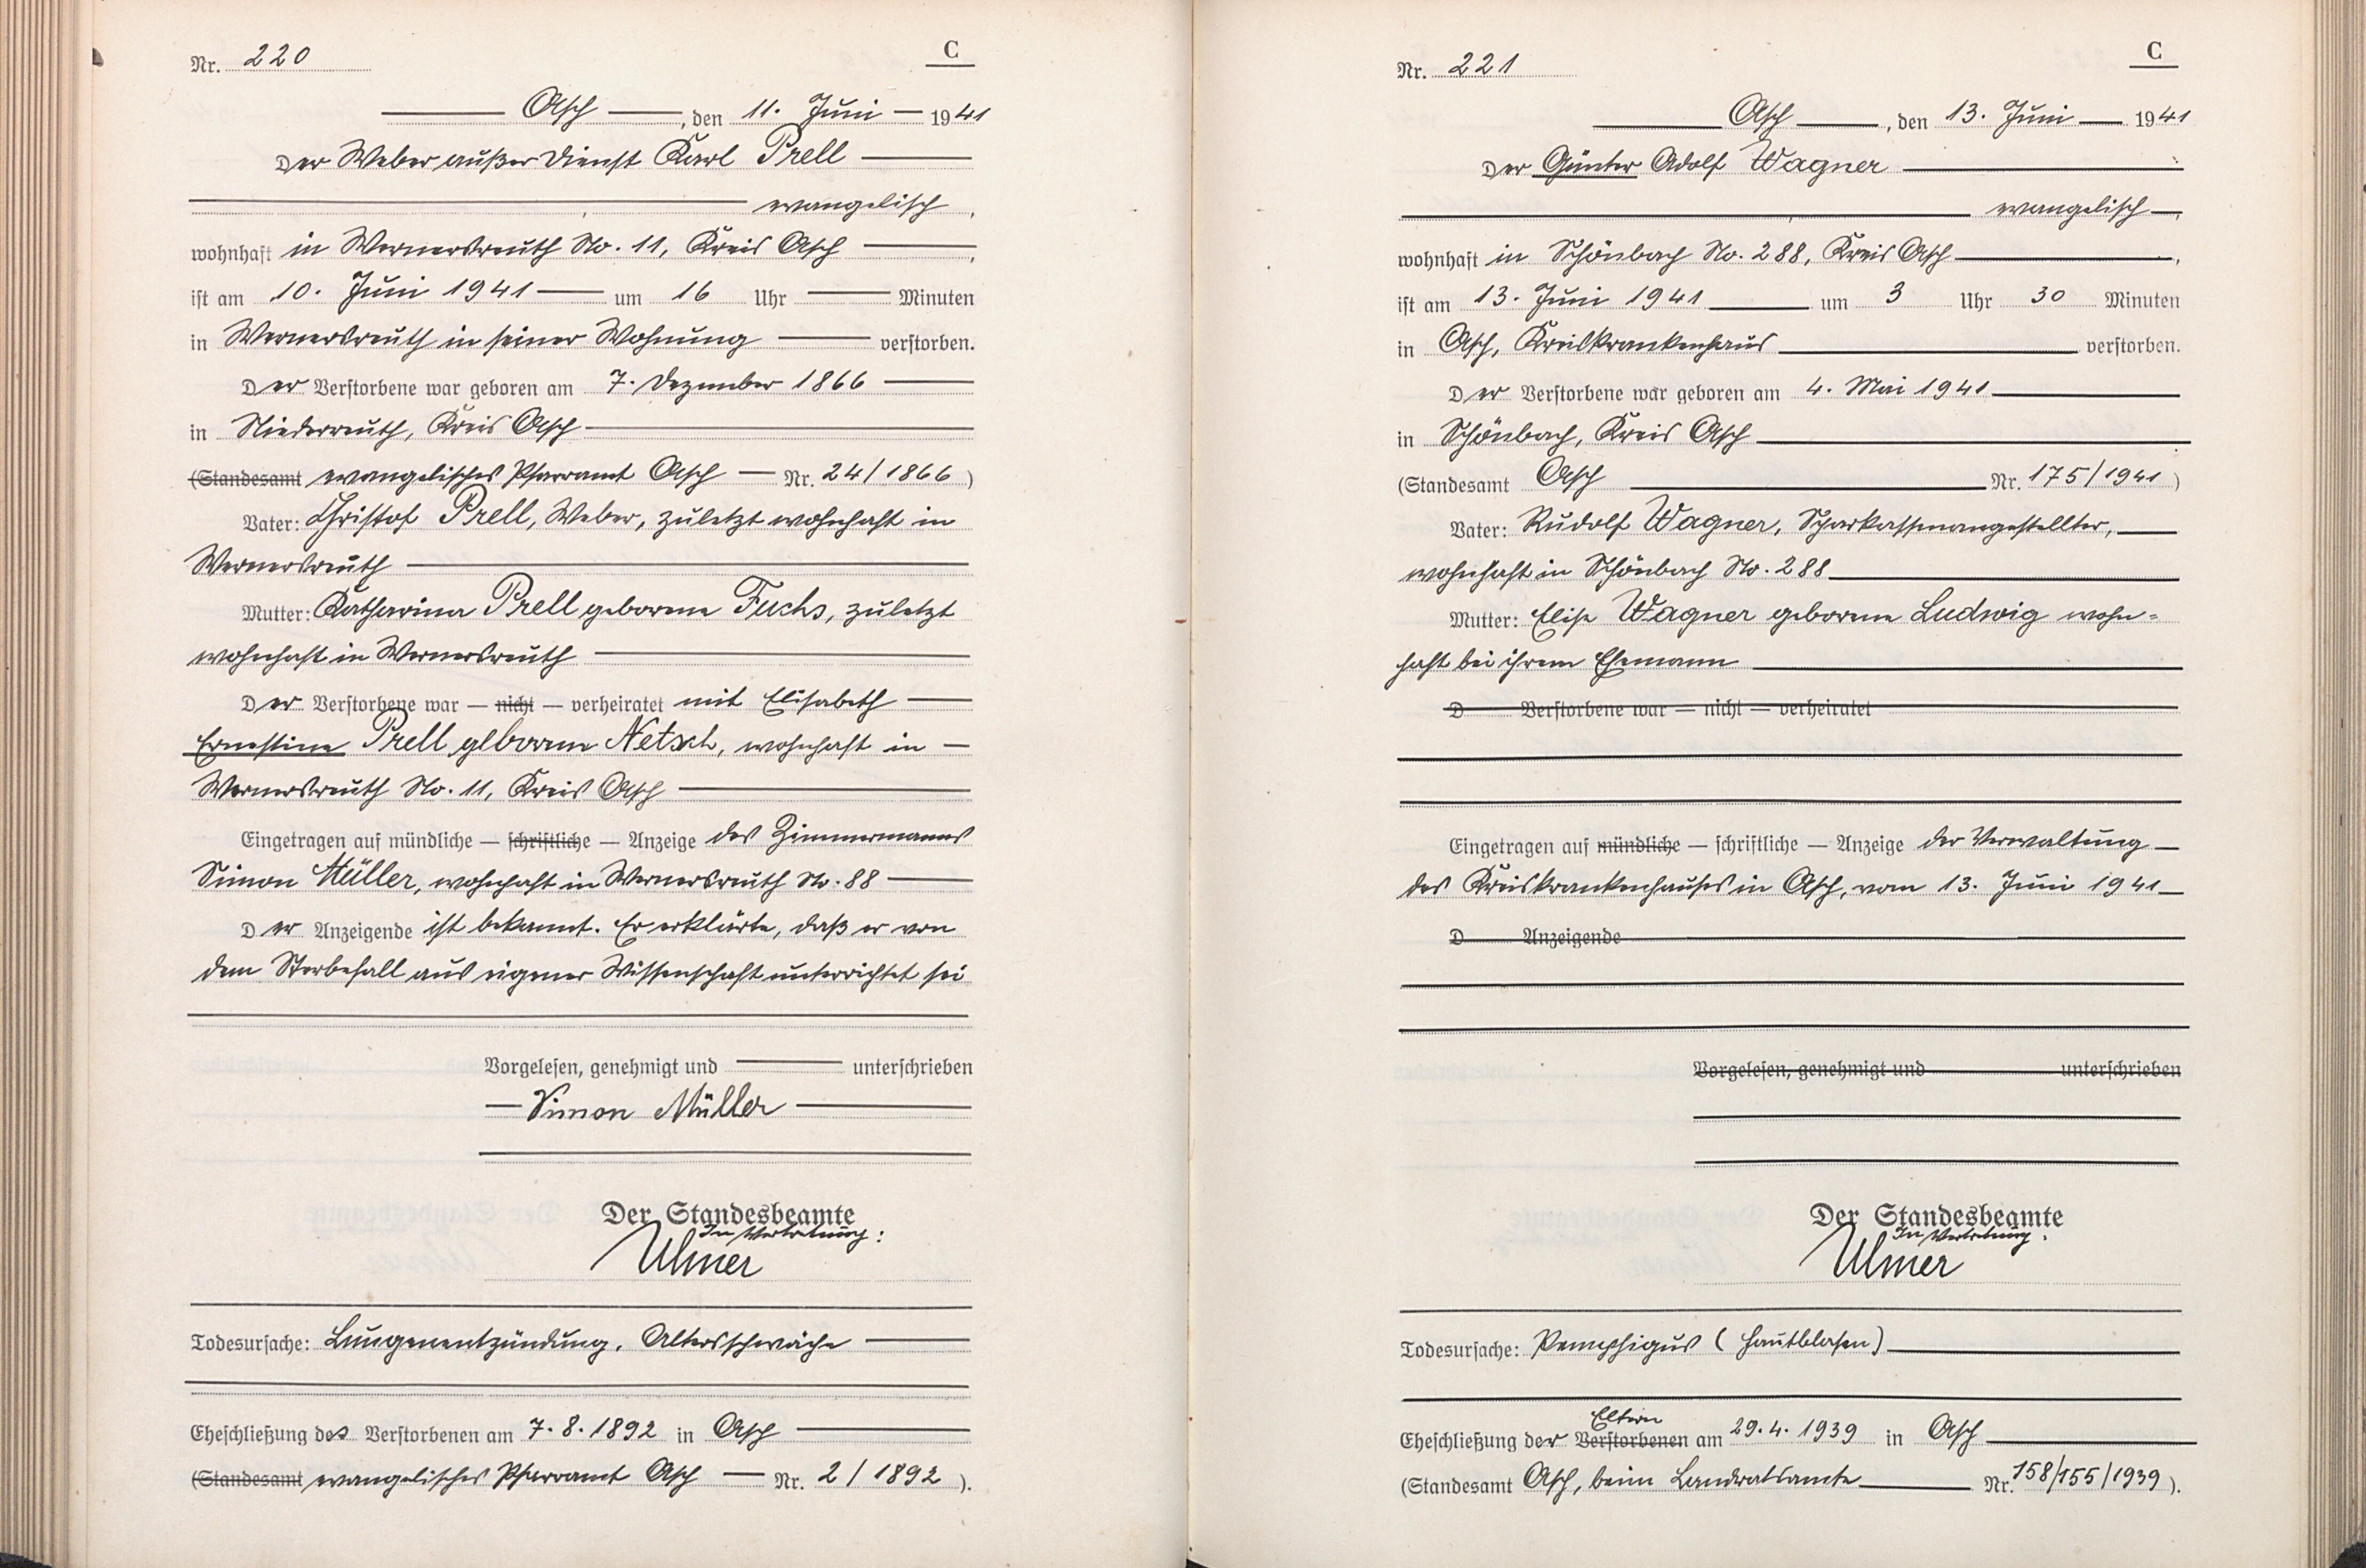 Nr. 220
C
Asch, den 11. Juni 1941
Der Weber außer Dienst Karl Prell
evangelisch,
wohnhaft in Wernersreuth No. 11, Kreis Asch,
ist am 10. Juni 1941 um 16 Uhr Minuten
in Wernersreuth in seiner Wohnung verstorben.
Der Verstorbene war geboren am 7. Dezember 1866
in Niederreuth, Kreis Asch
(Standesamt evangelisches Pfarramt Asch — Nr. 24/1866)
Vater: Christof Prell, Weber, zuletzt wohnhaft in
Wernersreuth
Mutter: Katharina Prell geborene Fuchs, zuletzt
wohnhaft in Wernersreuth
Der Verstorbene war — nicht — verheiratet mit Elisabeth
Ernestine Prell geborene Netsch, wohnhaft in
Wernersreuth No. 11, Kreis Asch
Eingetragen auf mündliche — schriftliche — Anzeige des Zimmermanns
Simon Müller, wohnhaft in Wernersreuth No. 88
Der Anzeigende ist bekannt. Er erklärte, daß er von
dem Sterbefall aus eigener Wissenschaft unterrichtet sei
Vorgelesen, genehmigt und unterschrieben
Simon Müller
Der Standesbeamte
In Vertretung:
Ulmer
Todesursache: Lungenentzündung, Altersschwäche
Eheschließung des Verstorbenen am 7.8.1892 in Asch
(Standesamt evangelisches Pfarramt Asch — Nr. 2/1892).
Nr. 221
C
Asch, den 13. Juni 1941
Der Günter Adolf Wagner
evangelisch,
wohnhaft in Schönbach No. 288, Kreis Asch,
ist am 13. Juni 1941 um 3 Uhr 30 Minuten
in Asch, Kreiskrankenhaus verstorben.
Der Verstorbene war geboren am 4. Mai 1941
in Schönbach, Kreis Asch
(Standesamt Asch Nr. 175/1941)
Vater: Rudolf Wagner, Sparkassenangestellter,
wohnhaft in Schönbach No. 288
Mutter: Elise Wagner geborene Ludwig wohn=
haft bei ihrem Ehemann
D Verstorbene war — nicht — verheiratet
Eingetragen auf mündliche — schriftliche — Anzeige der Verwaltung
des Kreiskrankenhauses in Asch, vom 13. Juni 1941
D Anzeigende
Vorgelesen, genehmigt und unterschrieben
Der Standesbeamte
In Vertretung:
Ulmer
Todesursache: Pemphigus (Hautblasen)
Eltern
Eheschließung der Verstorbenen am 29.4.1939 in Asch
(Standesamt Asch, beim Landratsamte Nr. 158/155/1939).